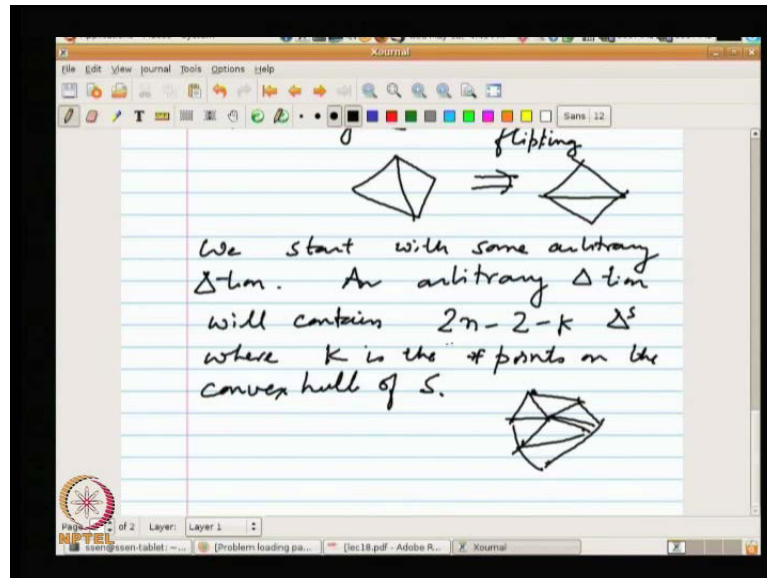 Xournal
File Edit View Journal Tools Options Help
T Sans 12
flipting
We start with some arbitrary
Δtion. An arbitrary Δtion
will contain 2n-2-k Δs
where k is the # points on the
convex hull of S.
Page of 2 Layer: Layer 1
NPTEL
ssen@ssen-tablet: ~... [Problem loading pa... [lec18.pdf - Adobe R... Xournal